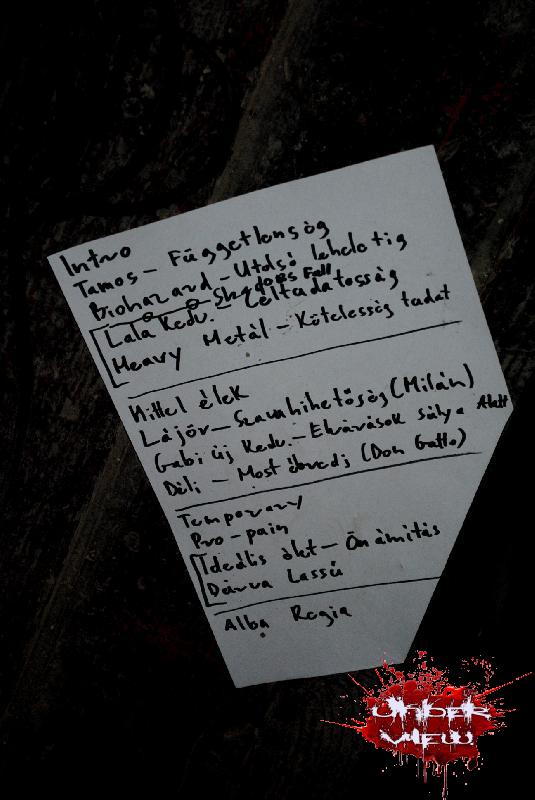 Intro
Tamos - Függetlenség
Biohazard - Utolsó leheletig
Shadows Fall
Lala Kedv. - Céltudatosság
Heavy Metál - Kötelesség tudat
Mittel élek
Lájör - Szavahihetőség (Milán)
Gabi új Kedv. - Elvárások súlya Alatt
Déli - Most ébredj (Don Gatto)
Temporary
Pro-pain
Ideális élet - Önámítás
Durva Lassú
Alba Regia
UNDER
VIEW